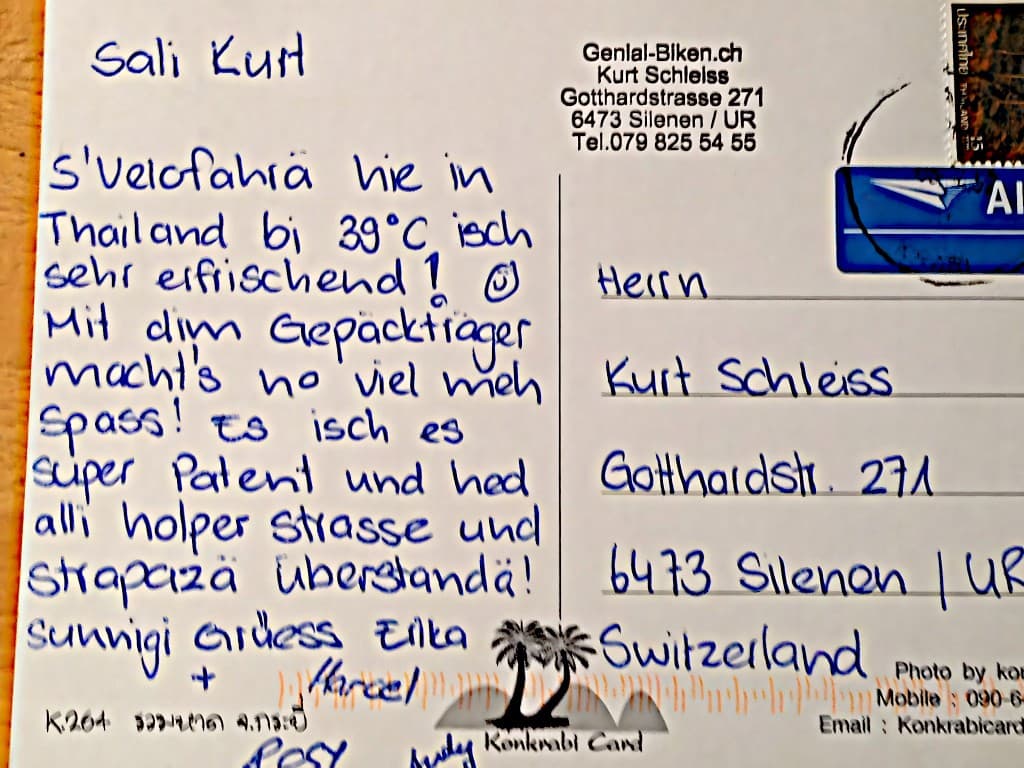 Sali Kurt
S'Velofahrä hie in
Thailand bi 39°C isch
sehr erfrischend!
Mit dim Gepäckträger
macht's no viel meh
Spass! Es isch es
super Patent und hed
alli holper Strasse und
Strapazä überstandä!
Sunnigi Grüess Erika
+ Marcel
Rosy Andy
Genial-Biken.ch
Kurt Schleiss
Gotthardstrasse 271
6473 Silenen / UR
Tel.079 825 54 55
ประเทศไทย THAILAND 15
AI
Herrn
Kurt Schleiss
Gotthardstr. 271
6473 Silenen / UR
Switzerland
K.264
Konkrabi Card
Photo by kon
Mobile : 090-6
Email : Konkrabicard